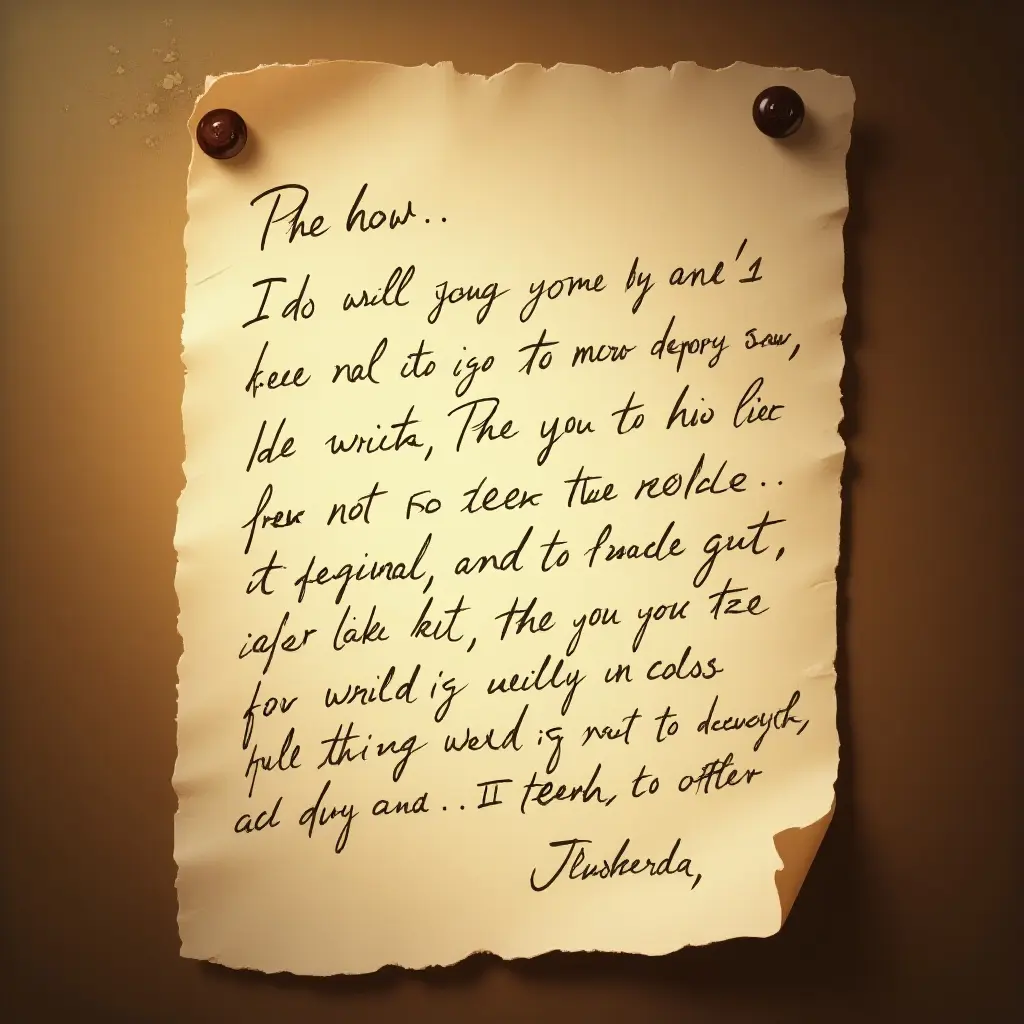 Phe how..
I do will joug yome by ane'1
keee nal ito igo to mcro depory saw,
Ide wricta, The you to hio liec
frex not Fo teek the reolde..
it feginal, and to fraacle gut,
iafer lake kit, the you you tze
for wrild ig weilly in coloss
hule thing weld ig nout to decvoyck,
acl duy and.. II teerh, to offler
Jluskerda,